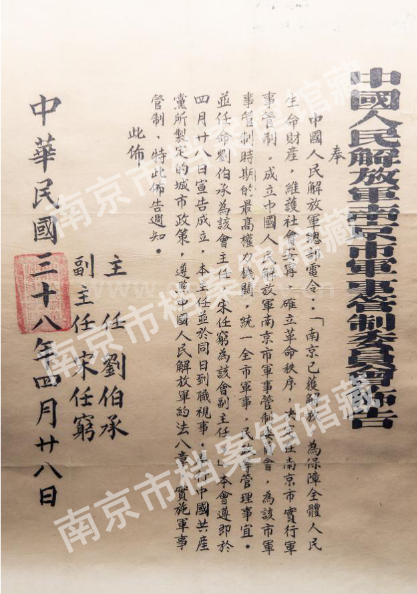 中國人民解放軍南京市軍事管制委員會佈告
奉
中國人民解放軍總部電令:「南京已獲解放,為保障全體人民
生命財產,維護社會安寧,確立革命秩序,決定在南京市實行軍
事管制,成立中國人民解放軍南京市軍事管制委員會,為該市軍
事管制時期的最高權力機關,統一全市軍事,民政等管理事宜。
並任命劉伯承為該會主任,宋任窮為該會副主任」。本會遵即於
四月廿八日宣告成立,本主任並於同日到職視事,執行中國共產
黨所製定的城市政策,遵守中國人民解放軍約法八章,實施軍事
管制,特此佈告週知。
此佈。
主任 劉伯承
副主任 宋任窮
中華民國三十八年四月廿八日
南京市档案馆馆藏
南京市档案馆馆藏
南京市档案馆馆藏